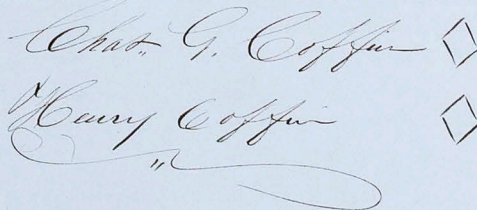 Chas. G. Coffin
Henry Coffin